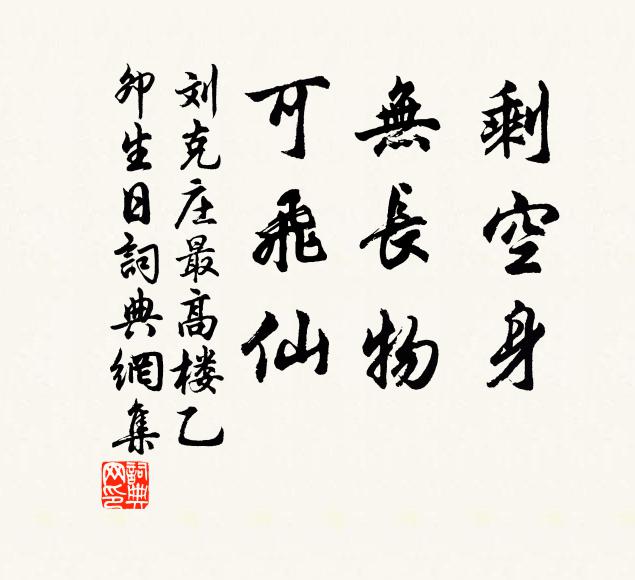 剩空身
無長物
可飛仙
刘克庄最高楼乙
卯生日詞典網集
詞典
网印